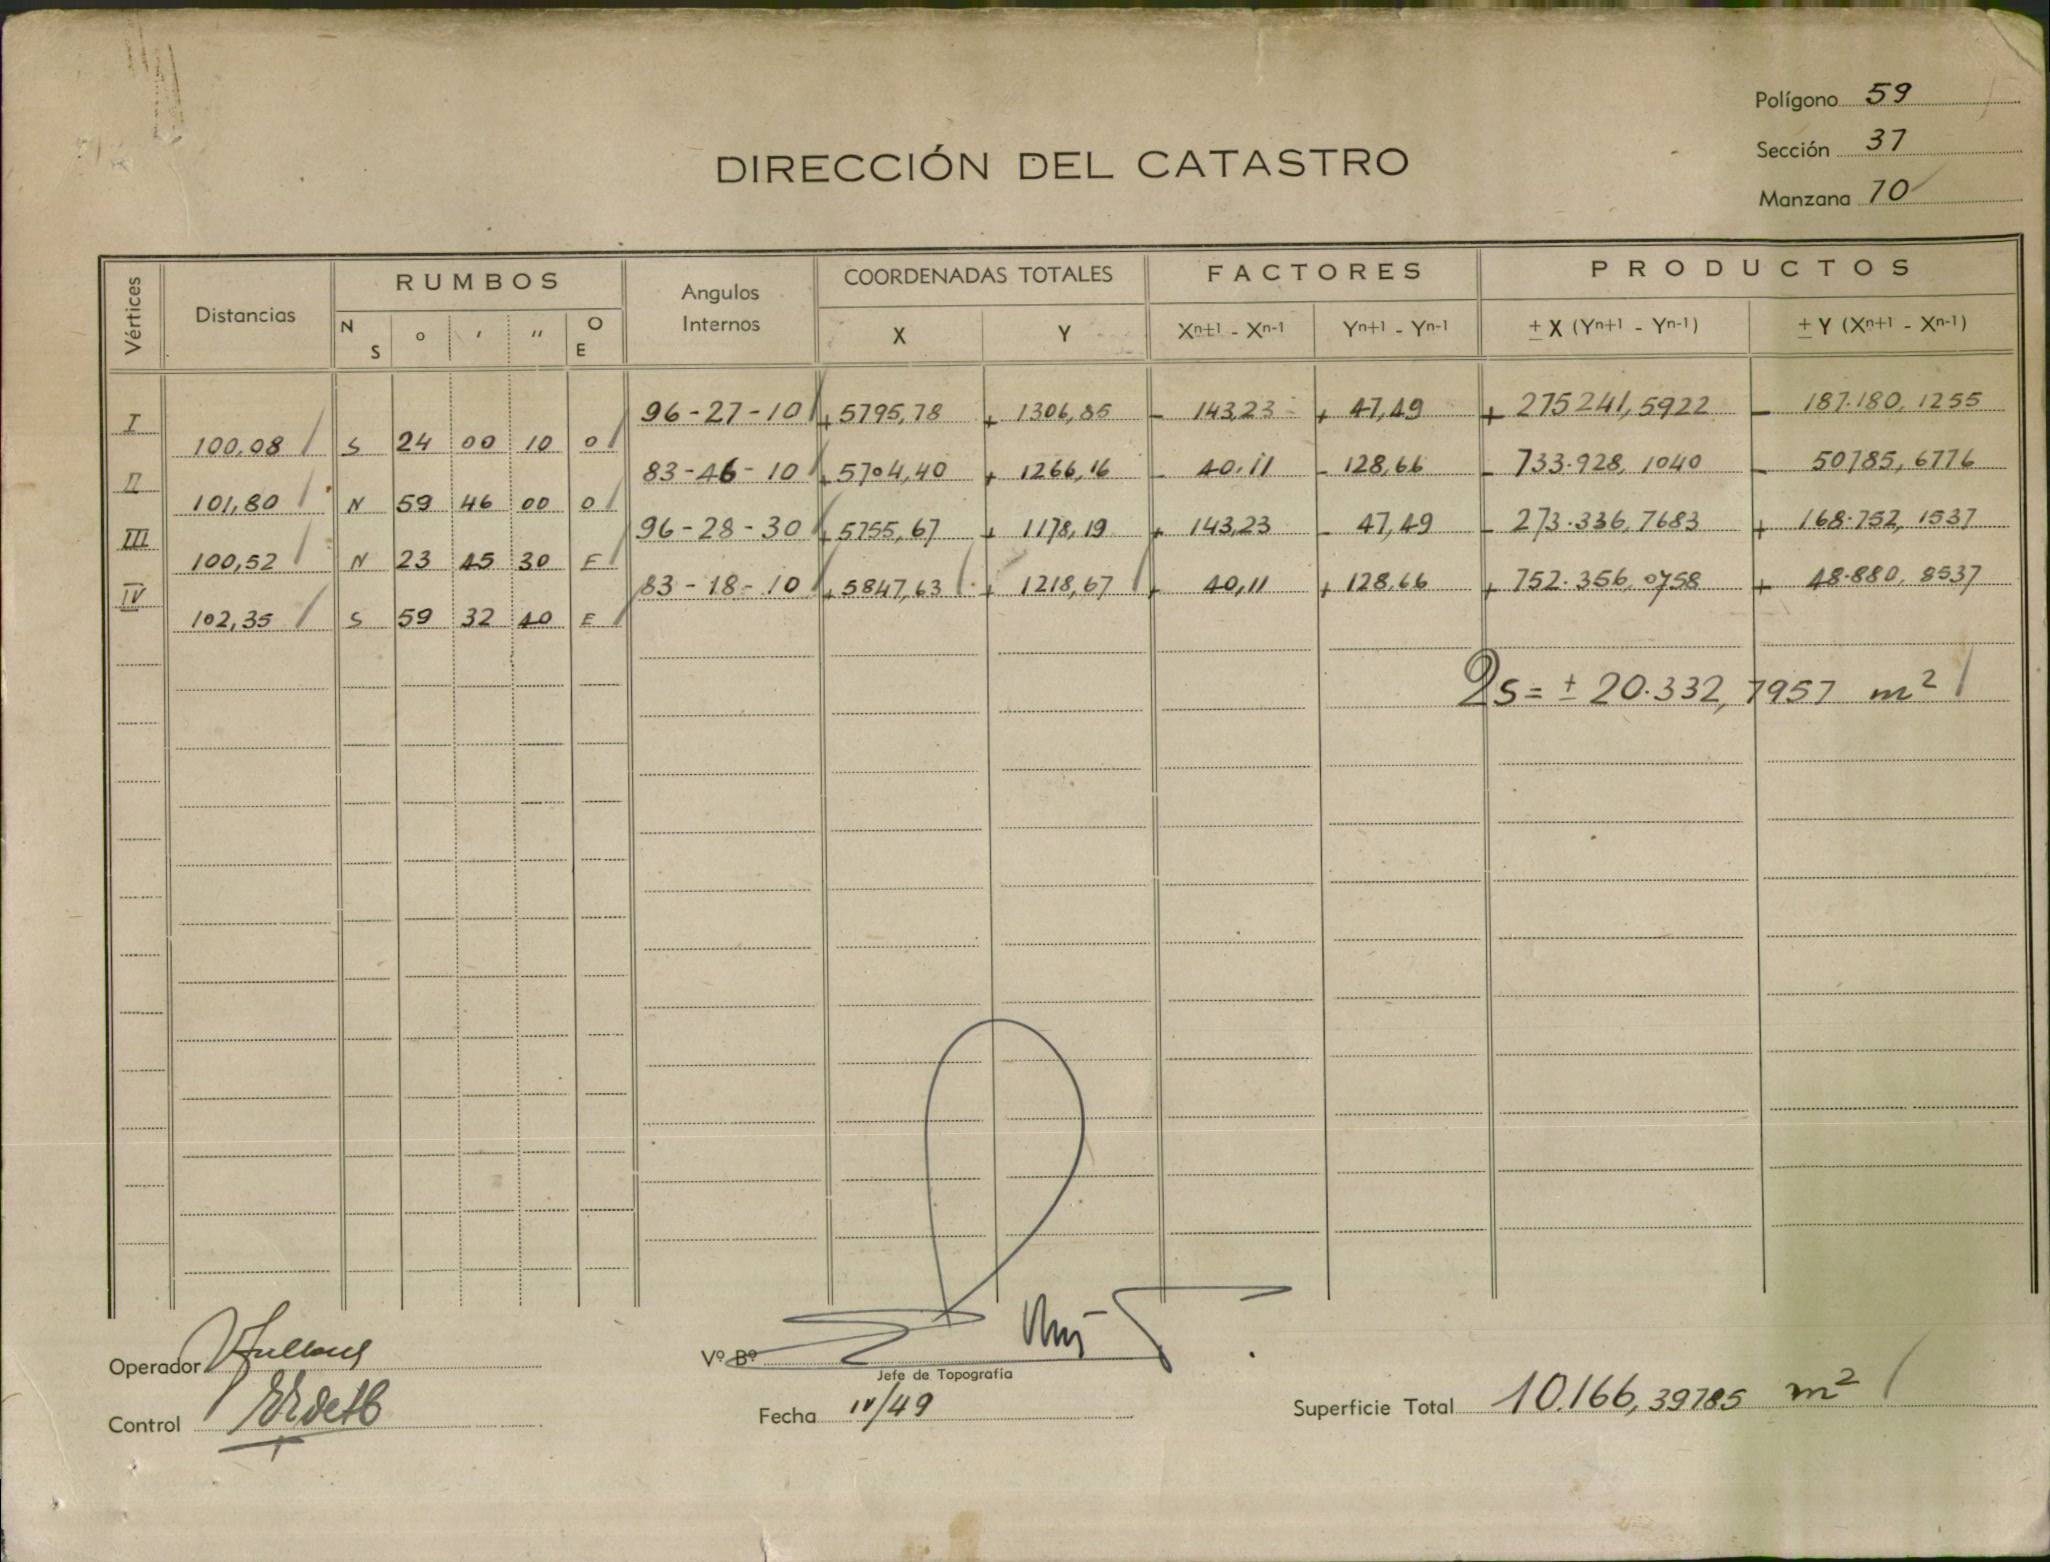 Polígono 59
Sección 37
Manzana 70
DIRECCIÓN DEL CATASTRO
Vértices Distancias RUMBOS Angulos Internos COORDENADAS TOTALES FACTORES PRODUCTOS
N S ° ′ ″ O E X Y Xn+1 - Xn-1 Yn+1 - Yn-1 ± X (Yn+1 - Yn-1) ± Y (Xn+1 - Xn-1)
I 96-27-10 + 5795,78 + 1306,85 - 143,23 + 47,49 + 275241,5922 - 187.180,1255
100,08 S 24 00 10 O
II 83-46-10 + 5704,40 + 1266,16 - 40,11 - 128,66 - 733.928,1040 - 50785,6776
101,80 N 59 46 00 O
III 96-28-30 + 5755,67 + 1178,19 + 143,23 - 47,49 - 273.336,7683 + 168.752,1537
100,52 N 23 45 30 E
IV 83-18-10 + 5847,63 + 1218,67 + 40,11 + 128,66 + 752.356,0758 + 48.880,8537
102,35 S 59 32 40 E
2s = ± 20.332,7957 m²
Operador
Vº Bº
Jefe de Topografía
Control
Fecha IV/49
Superficie Total 10.166,39785 m²